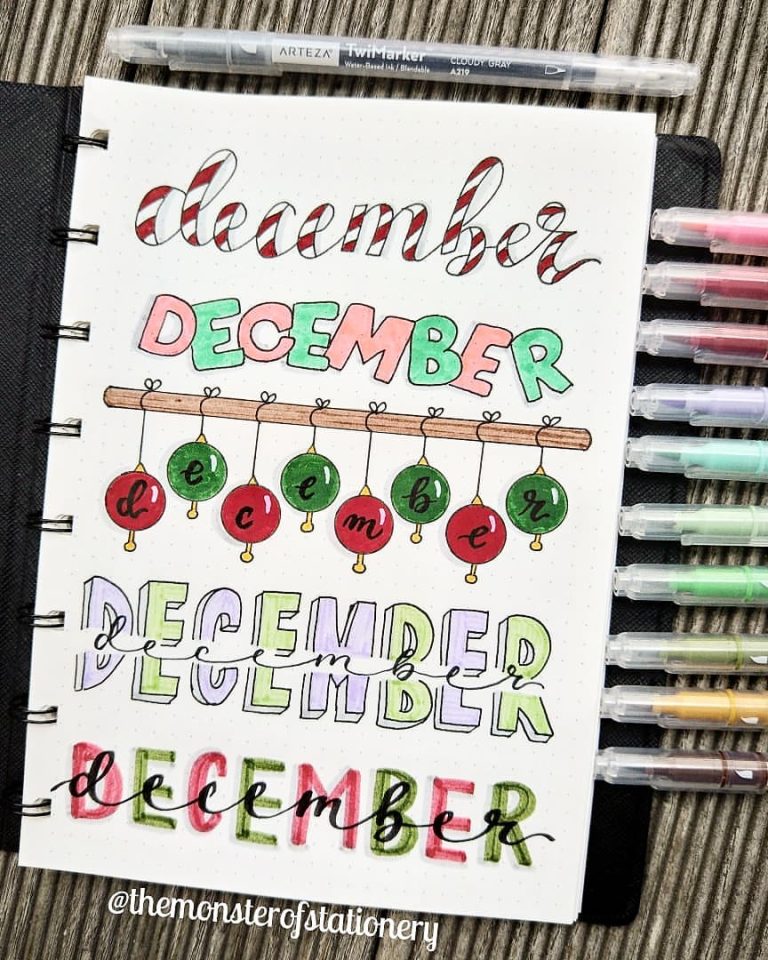 ARTEZA TwiMarker CLOUDY GRAY
Water-Based Ink / Blendable A219
december
DECEMBER
december
DECEMBER
december
DECEMBER
december
@themonsterofstationery